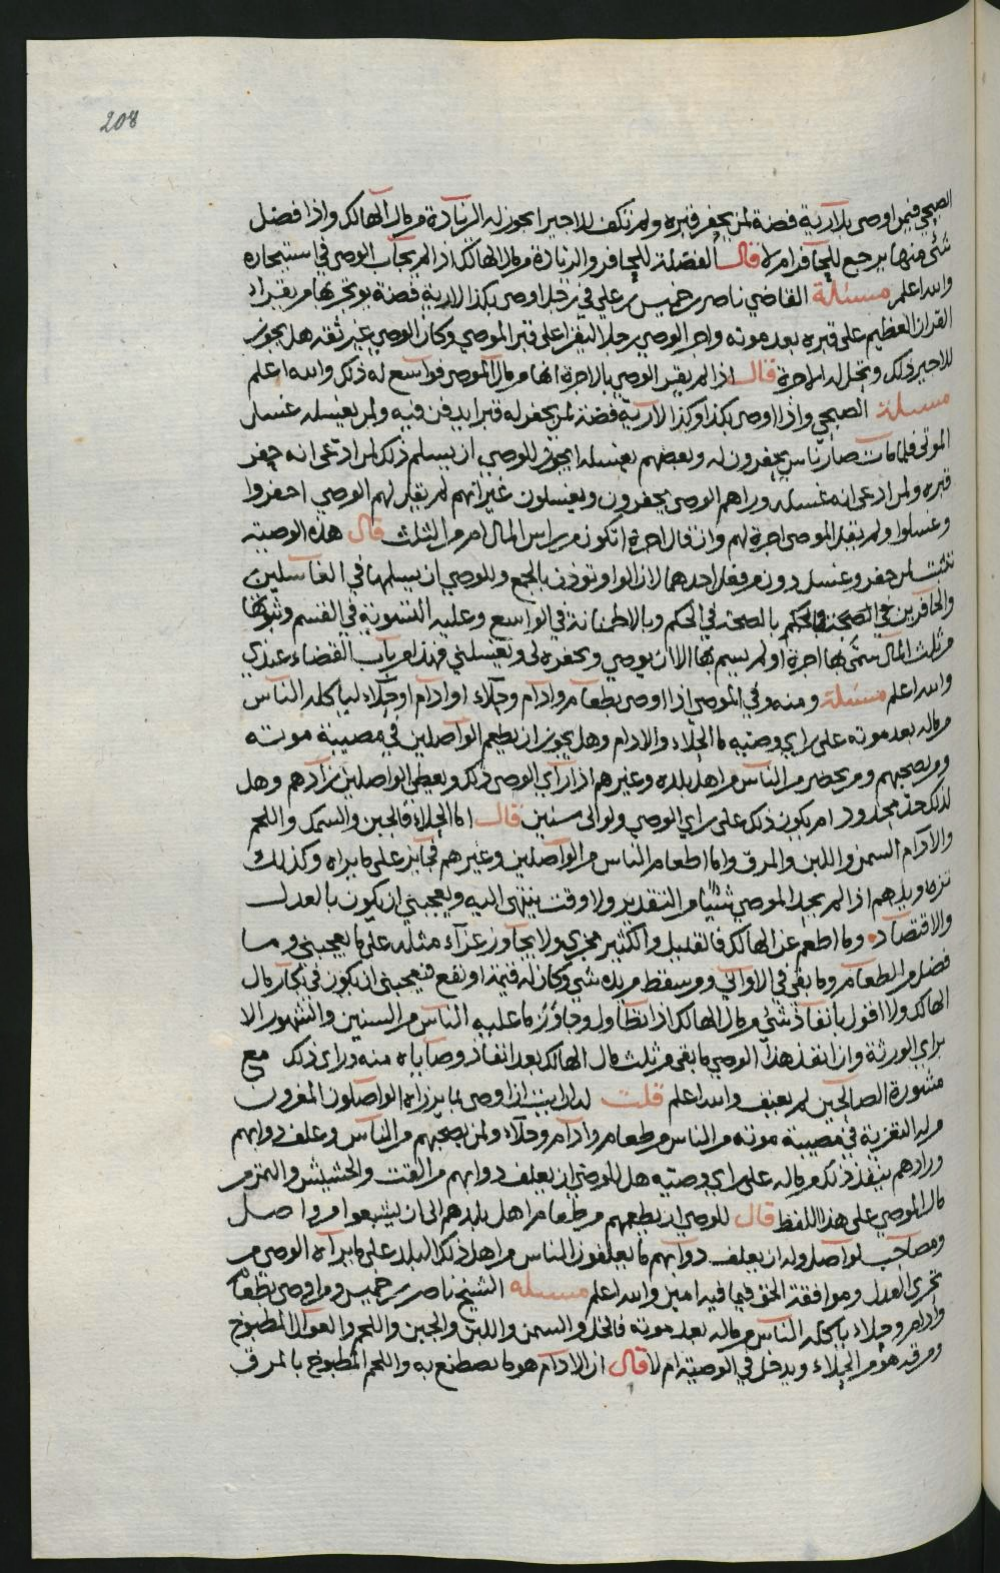 208
الصبحي فيمن اوصى بلارية فضة لمن يحفر قبره ولم تكف للاجير ايجوز له الزيادة من مال الهالك واذا فضل
شئ منها يرجع للحافر ام لا قال الفضلة للحافر والزيادة من مال الهالك اذا لم يحاب الوصي في استيجاره
والله اعلم مسئلة القاضي ناصر بن خميس بن علي في رجل اوصى بكذا لارية فضة يوتجر بها من يقراء
القران العظيم على قبره بعد موته واجر الوصي رجلا ليقرا على قبر الموصي وكان الوصي غير ثقه هل يجوز
للاجير ذلك وتحل له الاجرة قال اذا لم يقر الوصي بالاجرة انها من مال الموصي فواسع له ذلك والله اعلم
مسئلة الصبحي واذا اوصى بكذا وكذا لارية فضة لمن يحفر له قبرا يدفن فيه ولمن يغسله غسل
الموتى فلما مات صار ناس يحفرون له وبعضهم يغسله ايجوز للوصي ان يسلم ذلك لمن ادعى انه حفر
قبره ولمن ادعى انه غسله وراهم الوصي يحفرون ويغسلون غير انهم لم يقل لهم الوصي احفروا
وغسلوا ولم يقل الموصي اجرة لهم وان قال اجرة اتكون من راس المال ام من الثلث قال هذه الوصية
تثبت لمن حفر وغسل دون من فعل احدهما لان الواو توذن بالجمع وللوصي ان يسلمها في الغاسلين
والحافرين في الصحة في الحكم بالصحة في الحكم وبالاطمئنانة في الواسع وعليه التسوية في القسم وثبوتها
من ثلث المال سمى بها اجرة او لم يسم بها الا ان يوصي ويحفره لي ويغسلني فهذا من باب القضاء عندي
والله اعلم مسئلة ومنه وفي الموصي اذا اوصى بطعام وادام وحلاء او ادام او حلاء لياكله الناس
من ماله بعد موته على راي وصيه ما الحلاء والادام وهل يجوز ان يطعم الواصلين في مصيبة موته
ومن يصحبهم ومن يحضر من الناس من اهل بلده وغيرهم اذا راي الوصي ذلك ويعطي الواصلين زادهم وهل
لذلك حد محدود ام يكون ذلك على راي الوصي ولو الى سنين قال اما الحلاء فالجبن والسمك واللحم
والادام السمن واللبن والمرق واما اطعام الناس من الواصلين وغيرهم فجايز على ما يراه وكذلك
تزاويدهم اذا لم يحد الموصي شيئا من التقدير ولا وقت ينتهى اليه ويعجبني ان يكون بالعدل
والاقتصاد وما اطعم عن الهالك فالقليل والكثير مجزي ولا يجاوز عزاء مثله على ما يعجبني وما
فضل من الطعام وما بقي في الاواني ومن سقط من يده شي وكان له قيمة او نفع فيعجبني ان يكون في مال
الهالك ولا اقول بانفاذ شئ من مال الهالك اذا تطاول وجاوز ما عليه الناس من السنين والشهور الا
براي الورثة وان انفذ هذا الوصي ما بقي من ثلث مال الهالك بعد انفاذ وصاياه منه وراى ذلك مع
مشورة الصالحين لم يعنف والله اعلم قلت له ارايت ان اوصى بما يرزاه الواصلون المعزون
من له التعزية في مصيبة موته من الناس من طعام وادام وحلاء ولمن يصحبهم من الناس وعلف دوابهم
وزادهم ينفذ ذلك من ماله على راي وصيه هل للوصي ان يعلف دوابهم من القت والحشيش والتمر من
مال الموصي على هذا اللفظ قال للوصي ان يطعمهم من طعام اهل بلدهم الى ان يشبعوا من واصل
ومصاحب لواصل وله ان يعلف دوابهم ما يعلفون الناس من اهل ذلك البلد على ما يراه الوصي من
تحري العدل وموافقة الحق فيما فيه امين والله اعلم مسئله الشيخ ناصر بن خميس ومن اوصى بطعام
وادام وحلاء ياكله الناس من ماله بعد موته فالخل والسمن واللبن والجبن واللحم والعوال المطبوخ
ومرقه هو من الحلاء ويدخل في الوصية ام لا قال ان الادام هو ما يصطنع به واللحم المطبوخ بالمرق